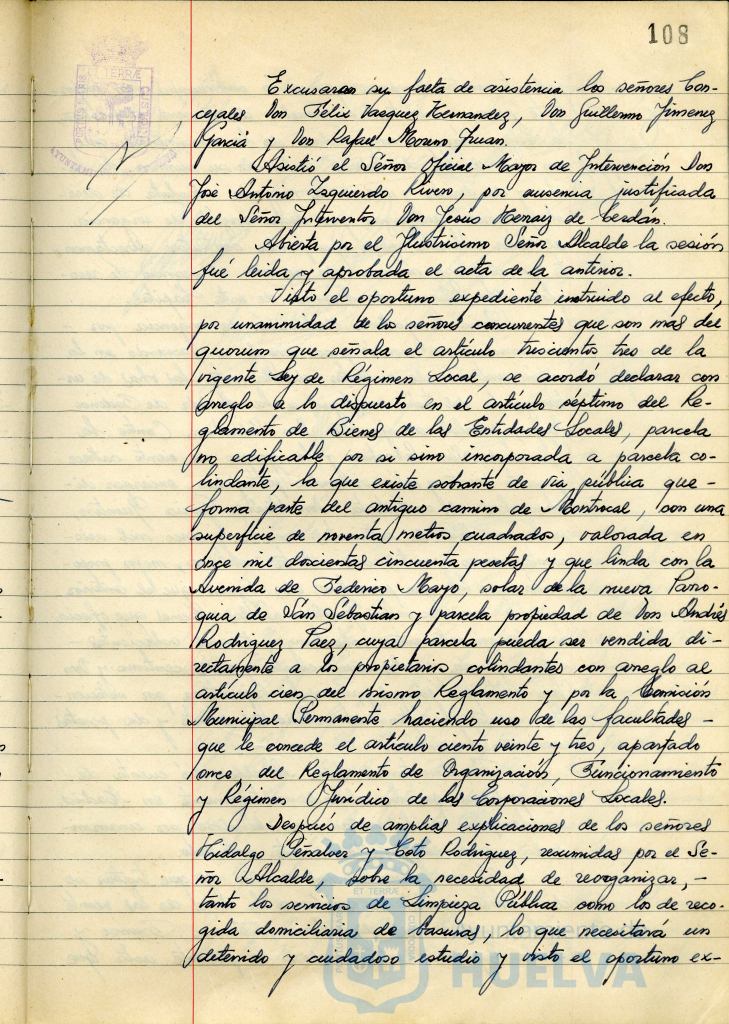 108
Excusaron su falta de asistencia los señores Con-
cejales Don Félix Vasquez Hernandez, Don Guillermo Jimenez
Garcia y Don Rafael Moreno Juan.
Asistió el Señor Oficial Mayor de Intervención Don
José Antonio Izquierdo Rivero, por ausencia justificada
del Señor Interventor Don Jesús Herraiz de Cerdán.
Abierta por el Ilustrisimo Señor Alcalde la sesión
fué leida y aprobada el acta de la anterior.
Visto el oportuno expediente instruido al efecto,
por unanimidad de los señores concurrentes que son mas del
quorum que señala el artículo trescientos tres de la
vigente Ley de Régimen Local, se acordó declarar con
arreglo a lo dispuesto en el artículo séptimo del Re-
glamento de Bienes de las Entidades Locales, parcela
no edificable por si sino incorporada a parcela co-
lindante, la que existe sobrante de via pública que -
forma parte del antiguo camino de Montrocal, con una
superficie de noventa metros cuadrados, valorada en
once mil doscientas cincuenta pesetas y que linda con la
Avenida de Federico Mayo, solar de la nueva Parro-
quia de San Sebastian y parcela propiedad de Don Andrés
Rodriguez Paez, cuya parcela pueda ser vendida di-
rectamente a los propietarios colindantes con arreglo al
artículo cien del mismo Reglamento y por la Comisión
Municipal Permanente haciendo uso de las facultades -
que le concede el artículo ciento veinte y tres, apartado
once del Reglamento de Organización, Funcionamiento
y Régimen Jurídico de las Corporaciones Locales.
Después de amplias explicaciones de los señores
Hidalgo Peñalver y Coto Rodriguez, resumidas por el Se-
ñor Alcalde, sobre la necesidad de reorganizar, -
tanto los servicios de Limpieza Pública como los de reco-
gida domiciliaria de basuras, lo que necesitará un
detenido y cuidadoso estudio y visto el oportuno ex-
HUELVA